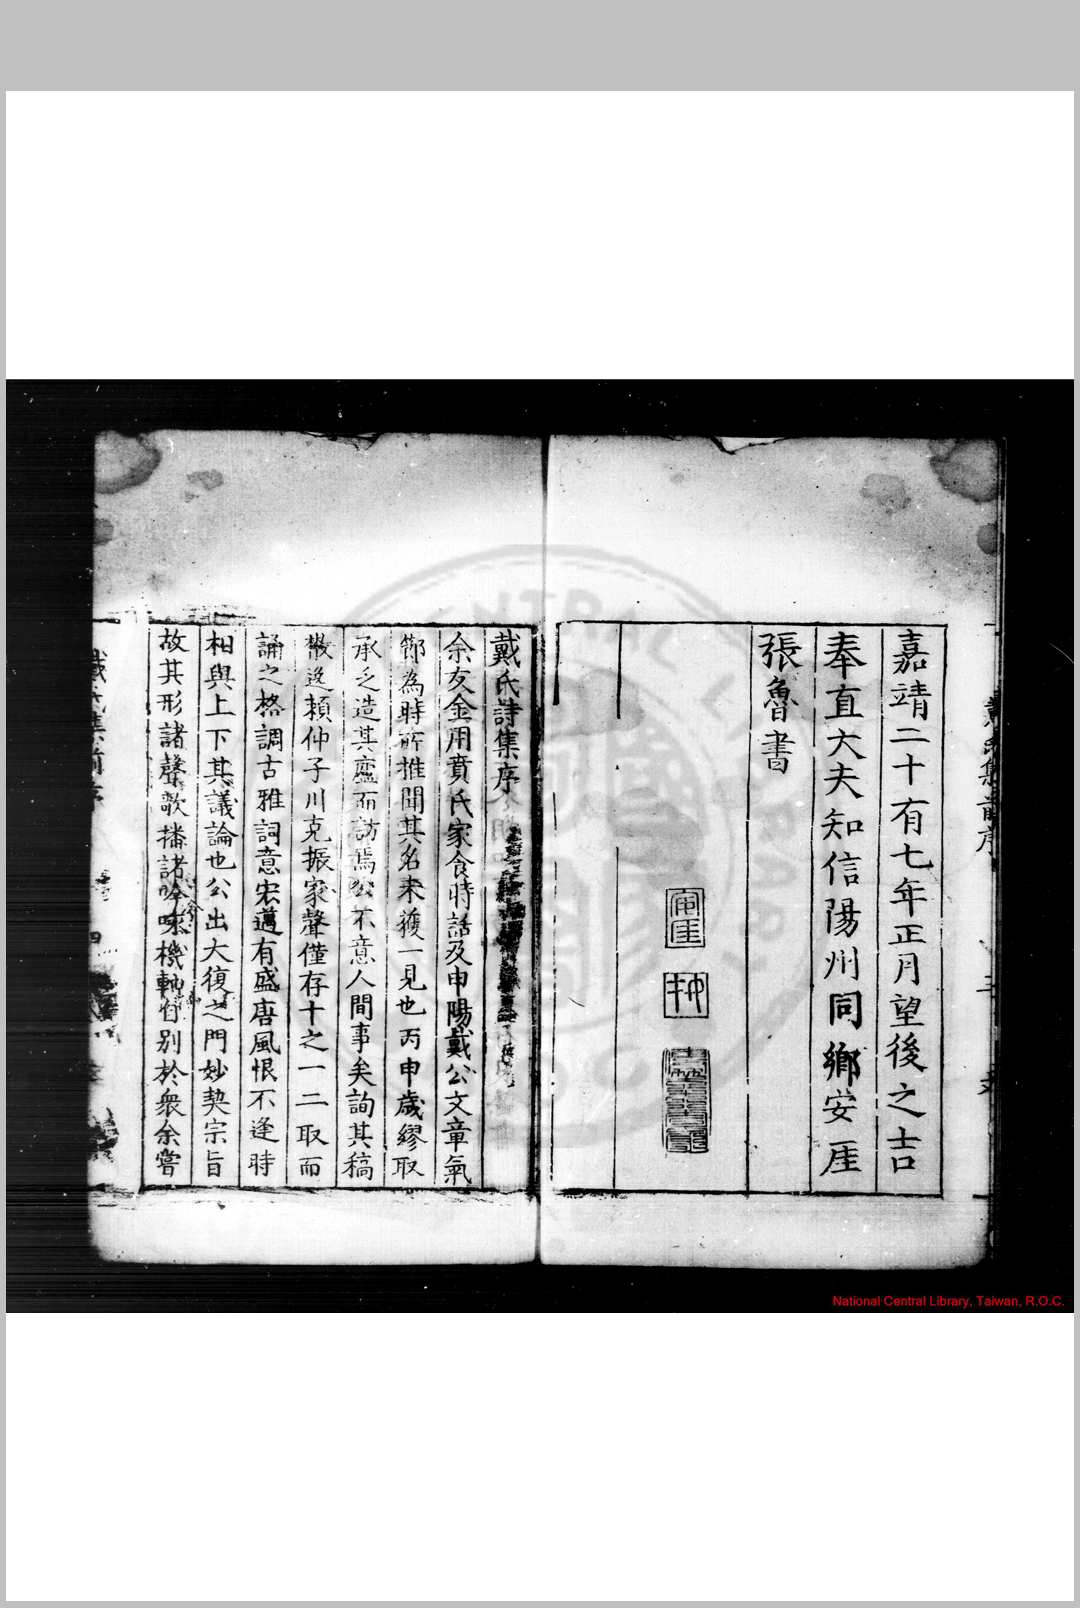 嘉靖二十有七年正月望後之吉
奉直大夫知信陽州同鄉安厓
張魯書
戴氏詩集序
余友金用賁氏家食時話及申陽戴公文章氣
節為時所推聞其名未獲一見也丙申歲繆取
承乏造其廬而訪焉公不意人間事矣詢其稿
散逸賴仲子川克振家聲僅存十之一二取而
誦之格調古雅詞意宏邁有盛唐風恨不逢時
相與上下其議論也公出大復之門妙契宗旨
故其形諸聲歌播諸吟咏機軸自別於衆余嘗
戴氏集前序
National Central Library, Taiwan, R.O.C.